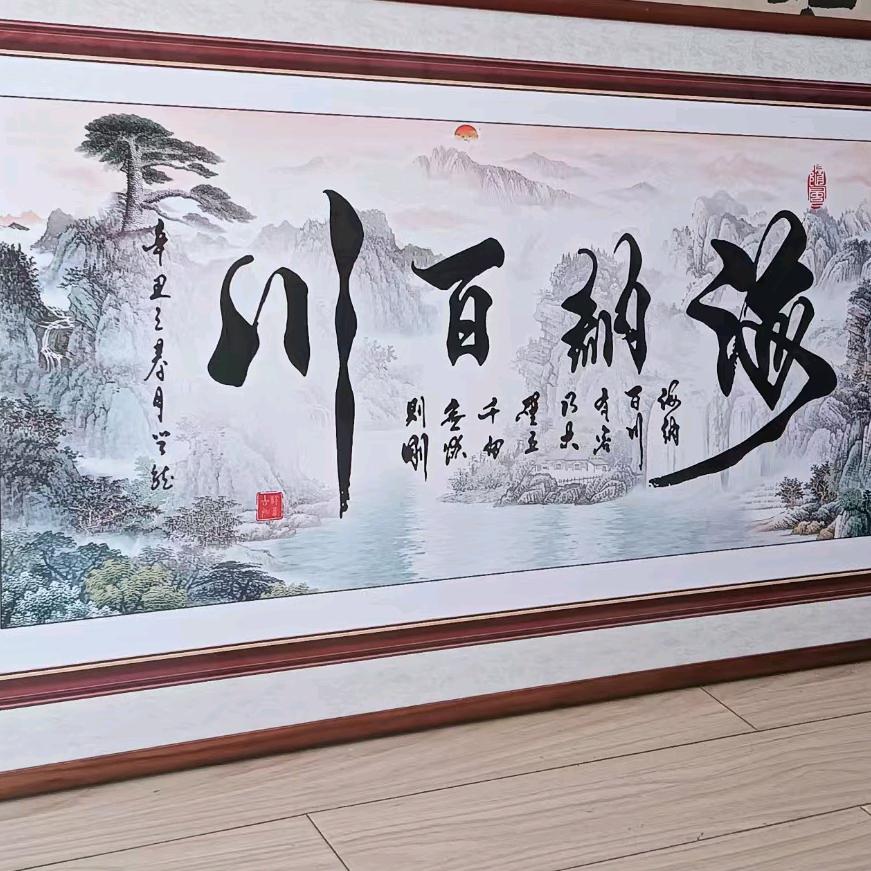 海納百川
海納
百川
有容
乃大
壁立
千仞
無欲
則剛
辛丑之春月